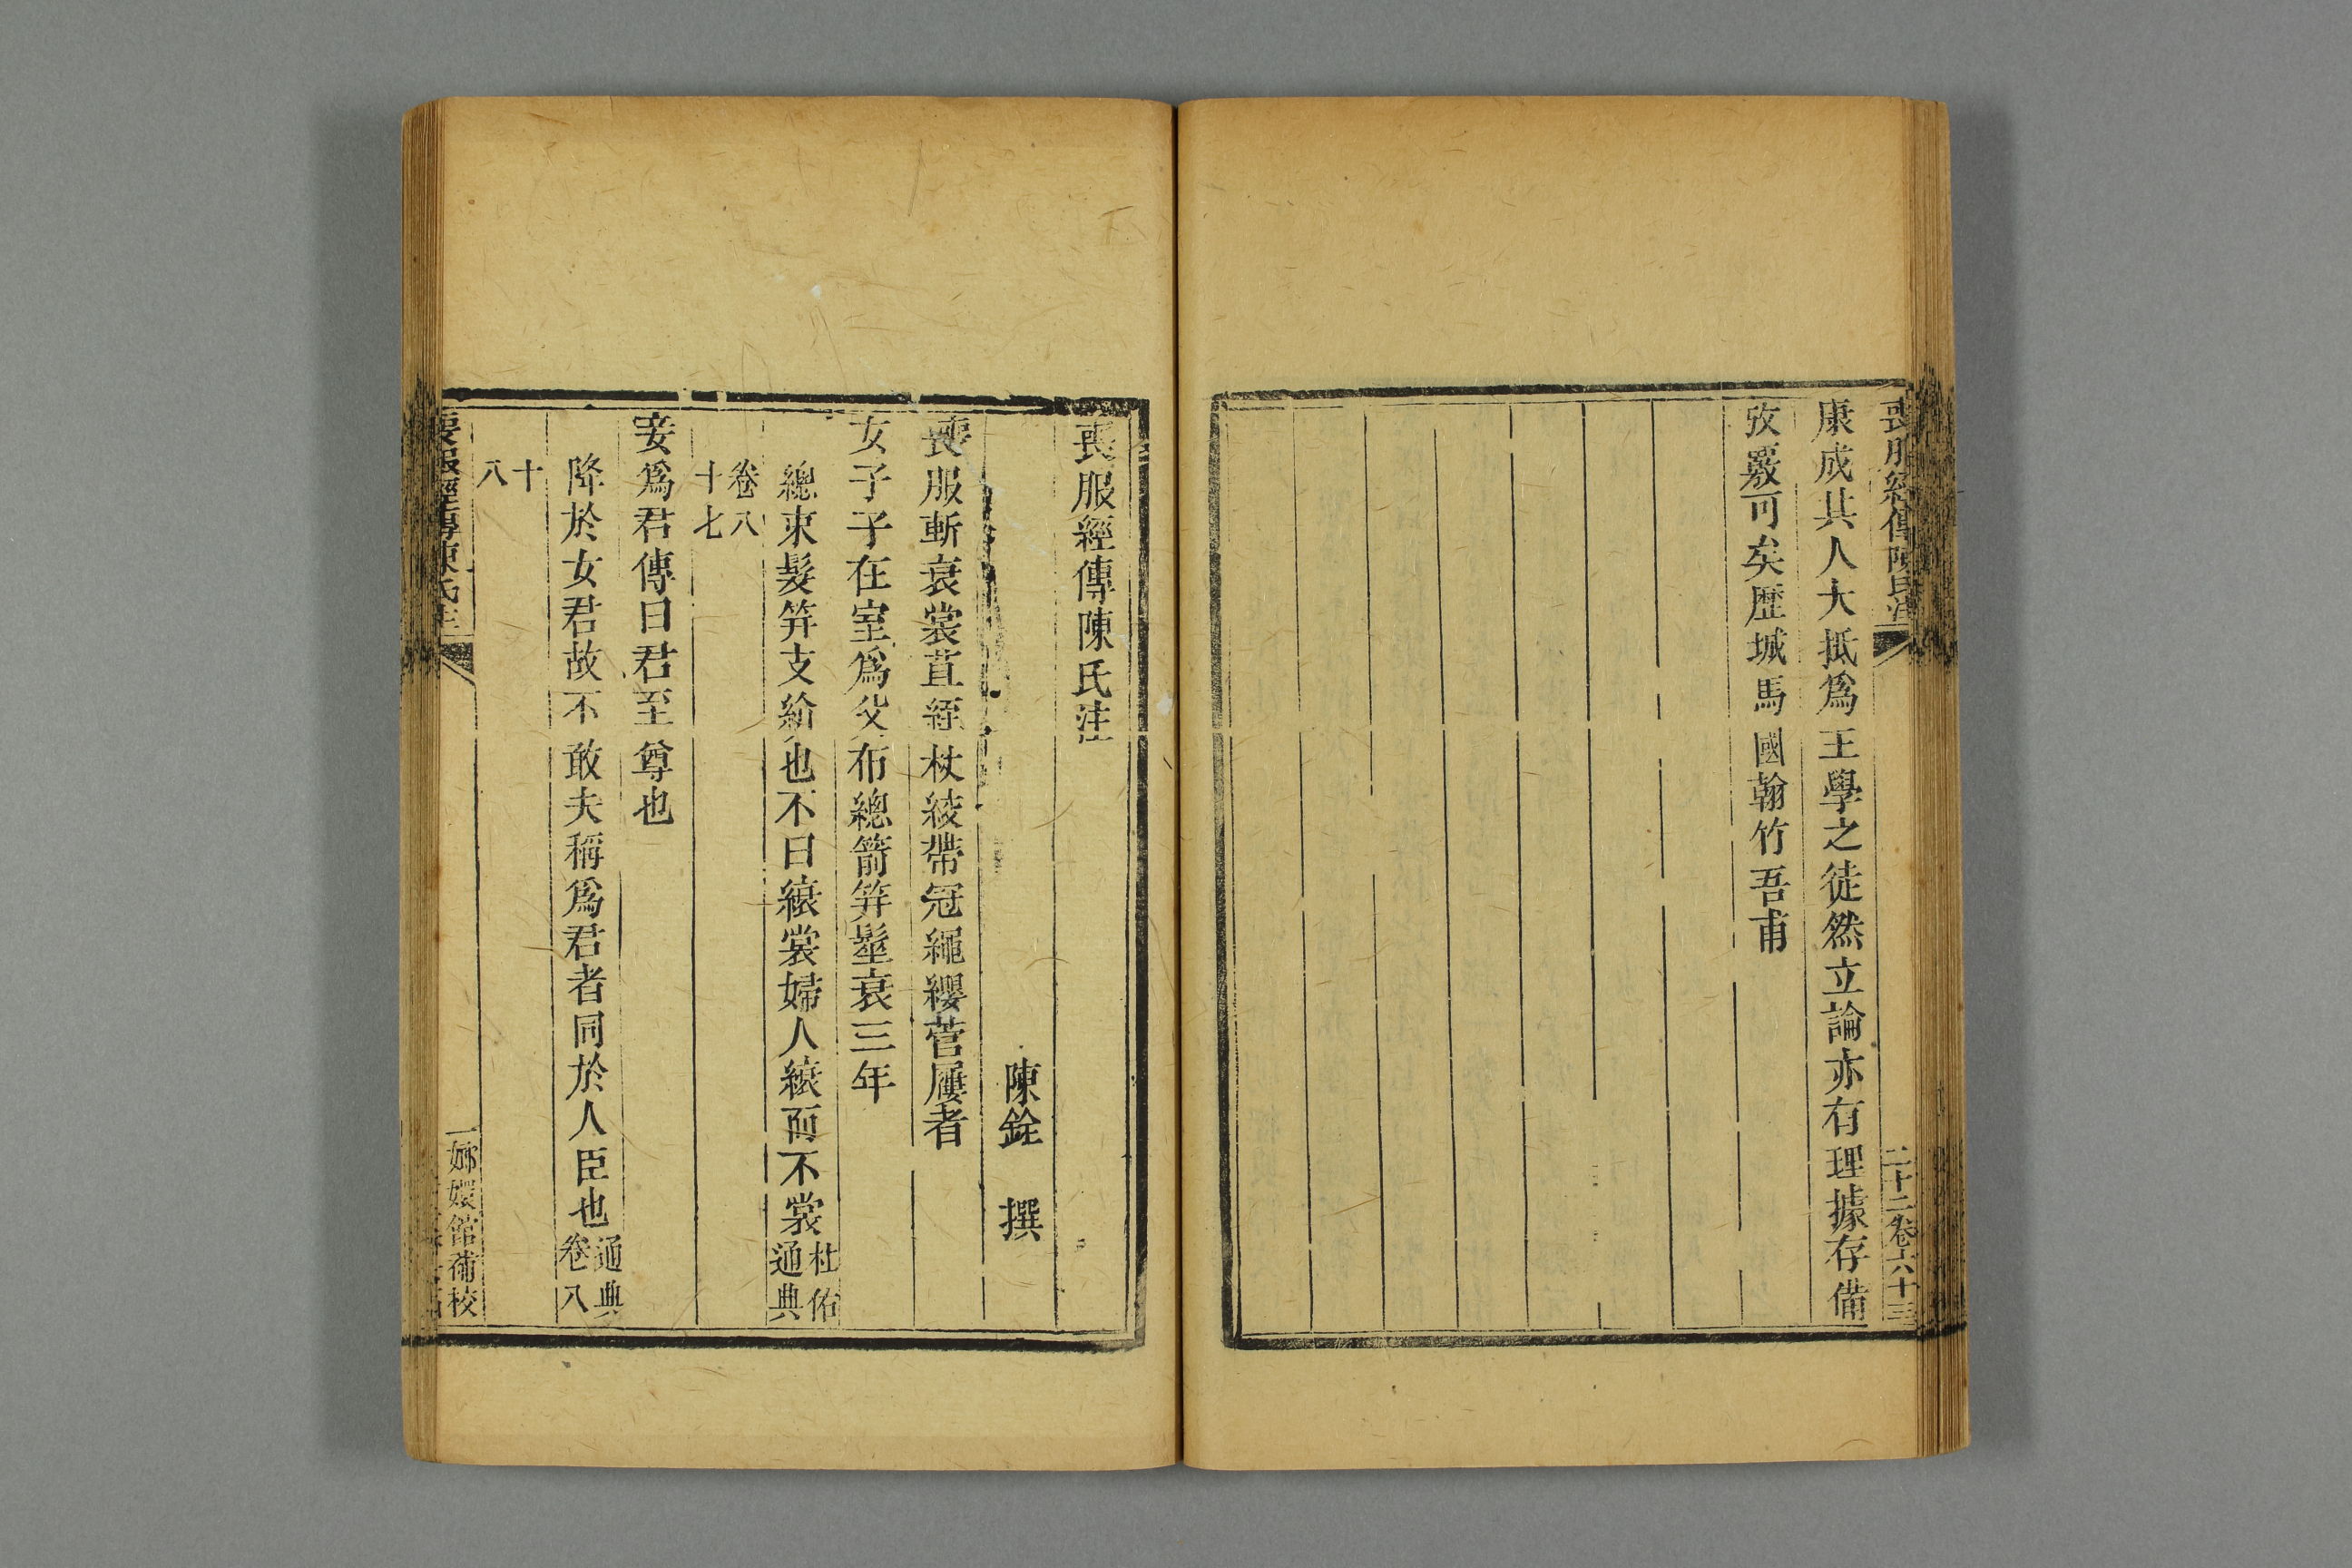 喪服經傳陳氏注
二十二卷六十三
康成其人大抵爲王學之徒然立論亦有理據存備
攷覈可矣歴城馬國翰竹吾甫
喪服經傳陳氏注
陳銓 撰
喪服斬衰裳苴絰杖絞帶冠繩纓菅屨者
女子子在室爲父布總箭笄髽衰三年
總束髮笄支紒也不曰縗裳婦人縗而不裳
杜佑
通典
卷八
十七
妾爲君傳曰君至尊也
降於女君故不敢夫稱爲君者同於人臣也
通典
卷八
十
八
喪服經傳陳氏注
一
嫏嬛館補校